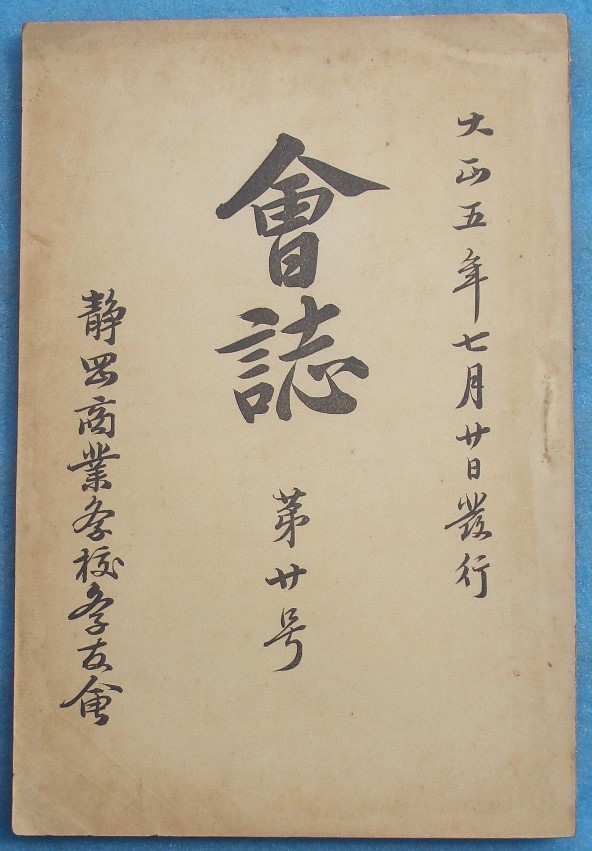 大正五年七月廿日發行
會誌
第廿号
静岡商業学校学友會